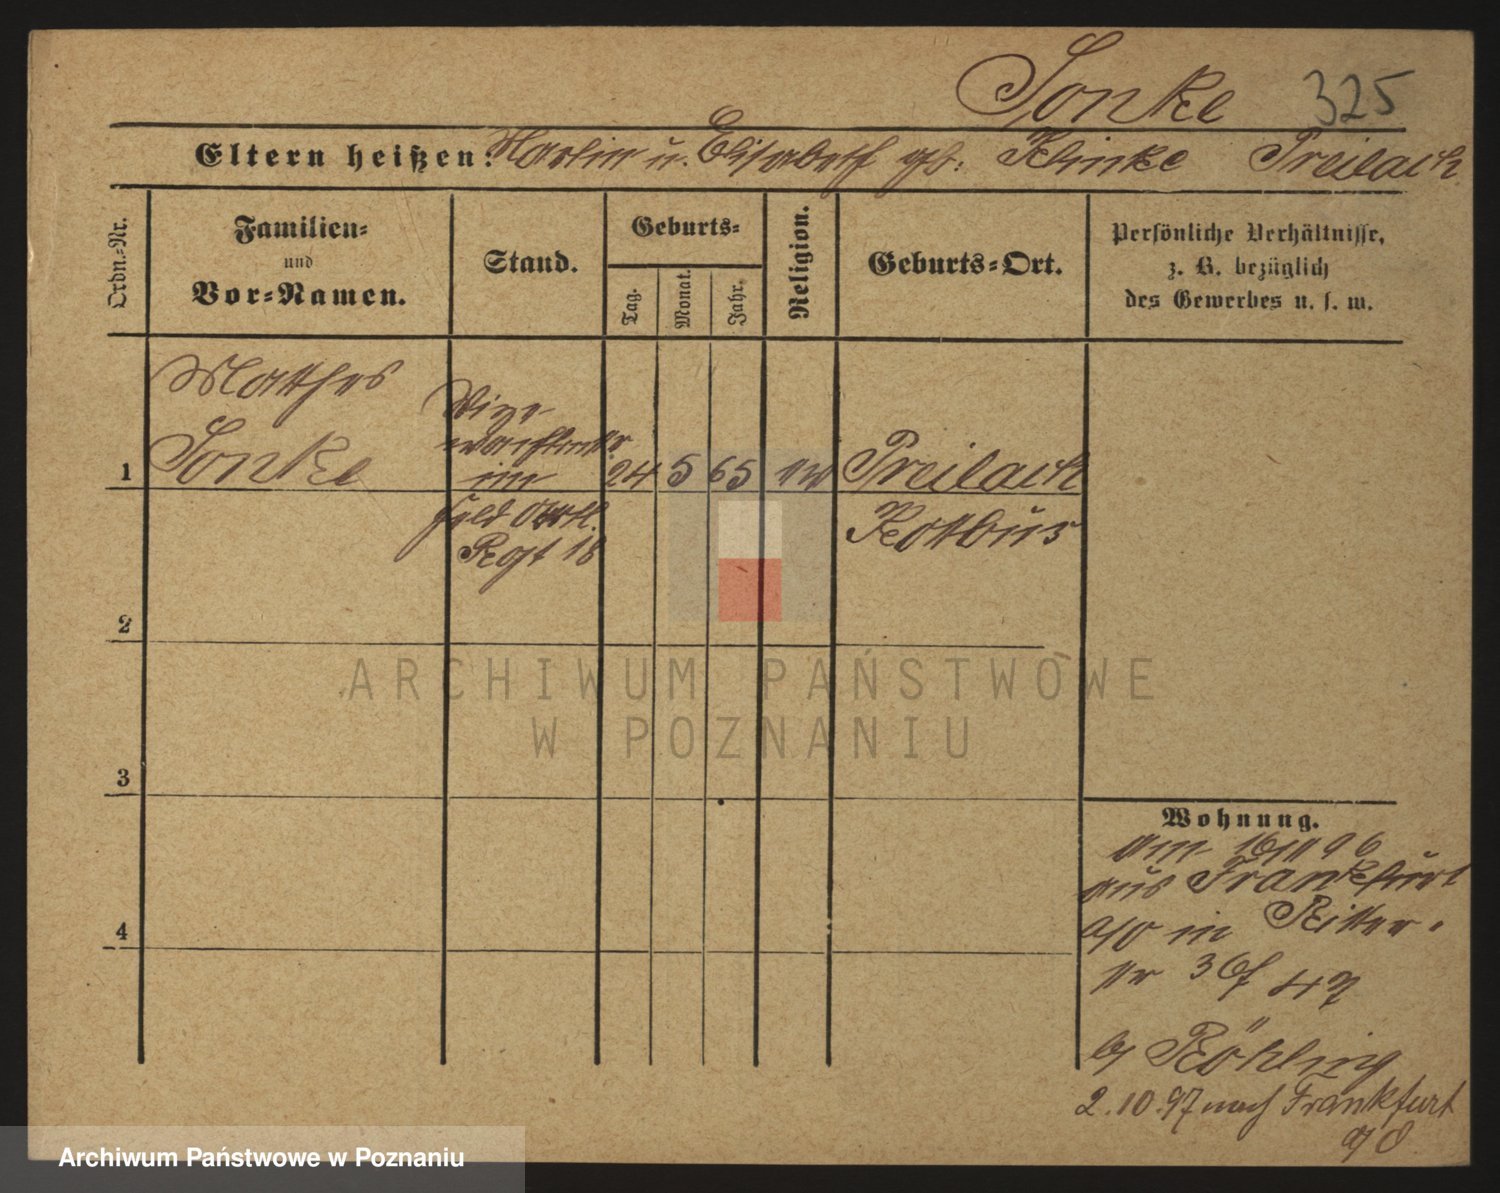 Sonke 325
Eltern heißen: Martin u. Elisabeth gb: Klinke Preilack
Ordn.-Nr.
Familien-
und
Vor-Namen.
Stand.
Geburts-
Tag.
Monat.
Jahr.
Religion.
Geburts-Ort.
Persönliche Verhältnisse,
z. B. bezüglich
des Gewerbes u. s. w.
Mathes
Sonke
Vize
wachtmstr
im
Feld Artl.
Regt 18
1
24 5 65
Preilack
Kotbus
2
3
4
Wohnung.
am 96
aus Frankfurt
a/O in Ritter-
47
b/ Röhling
2.10.97 nach Frankfurt
a/O.
ARCHIWUM PAŃSTWOWE
W POZNANIU
Archiwum Państwowe w Poznaniu